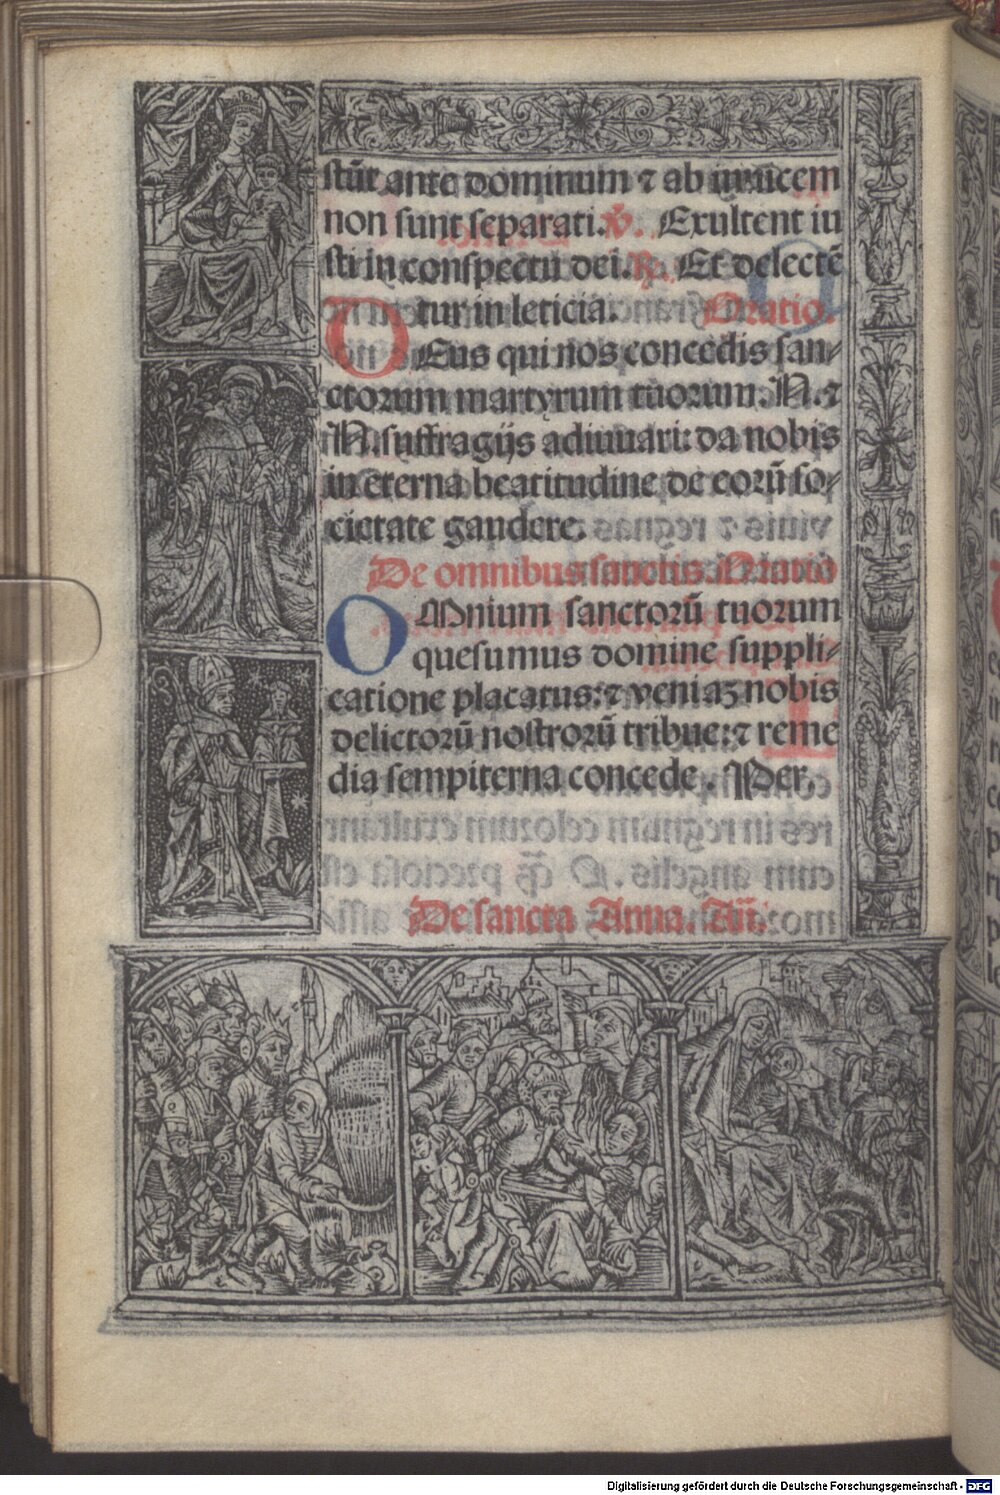 stūt ante dominum ⁊ ab inuicem
non sunt separati. ℣. Exultent iu
sti in conspectu dei. ℟. Et delectē
tur in leticia. Oratio.
DEus qui nos concedis san⸗
ctorum martyrum tuorum. N. ⁊
N. suffragijs adiuuari: da nobis
in eterna beatitudine de eorū so⸗
cietate gaudere.
De omnibus sanctis. Oratio
OMnium sanctorū tuorum
quesumus domine suppli⸗
catione placatus: ⁊ veniaꝫ nobis
delictorū nostrorū tribue: ⁊ reme
dia sempiterna concede. Per.
De sancta Anna. Añ.
Digitalisierung gefördert durch die Deutsche Forschungsgemeinschaft - DFG